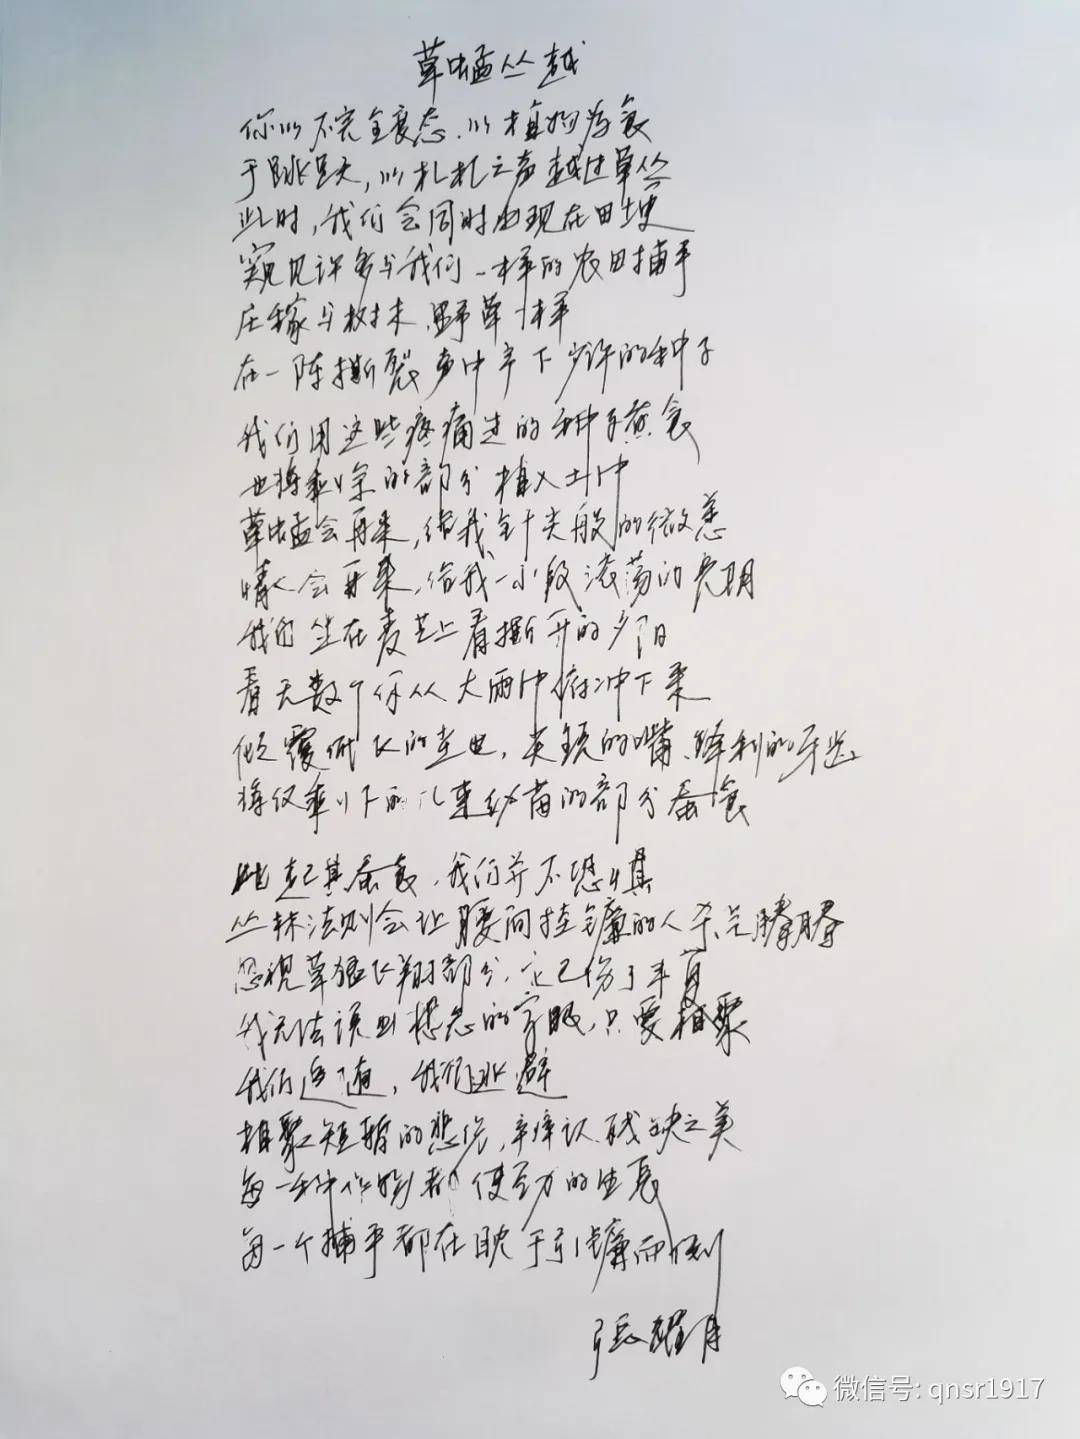 草蜢丛越
你以不完全变态、以植物为食
于跳跃,以札札之声越过草丛
此时,我们会同时出现在田埂
窥见许多与我们一样的农田捕手
庄稼与树木、野草一样
在一阵撕裂声中产下少许的种子
我们用这些疼痛过的种子煮食
也将剩余的部分植入土中
草蜢会再来,给我针尖般的微恙
情人会再来,给我一小段浩荡的光阴
我们坐在麦芒上看撕开的夕阳
看无数个你从大雨中俯冲下来
倾覆低飞的 尖锐的嘴、锋利的牙齿
将仅剩下的几束幼苗的部分蚕食
比起其蚕食,我们并不恐惧
丛林法则会让腰间挂镰的人杀气腾腾
忽视草蜢飞翔部分,它已伤了半首
我无法读出想念的字眼,只要相聚
我们追逐,我们逃避
相聚短暂的悲伤,辨认残缺之美
每一种作物都使劲的生长
每一个捕手都在耽于引镰而刈
张耀月
微信号: qnsr1917